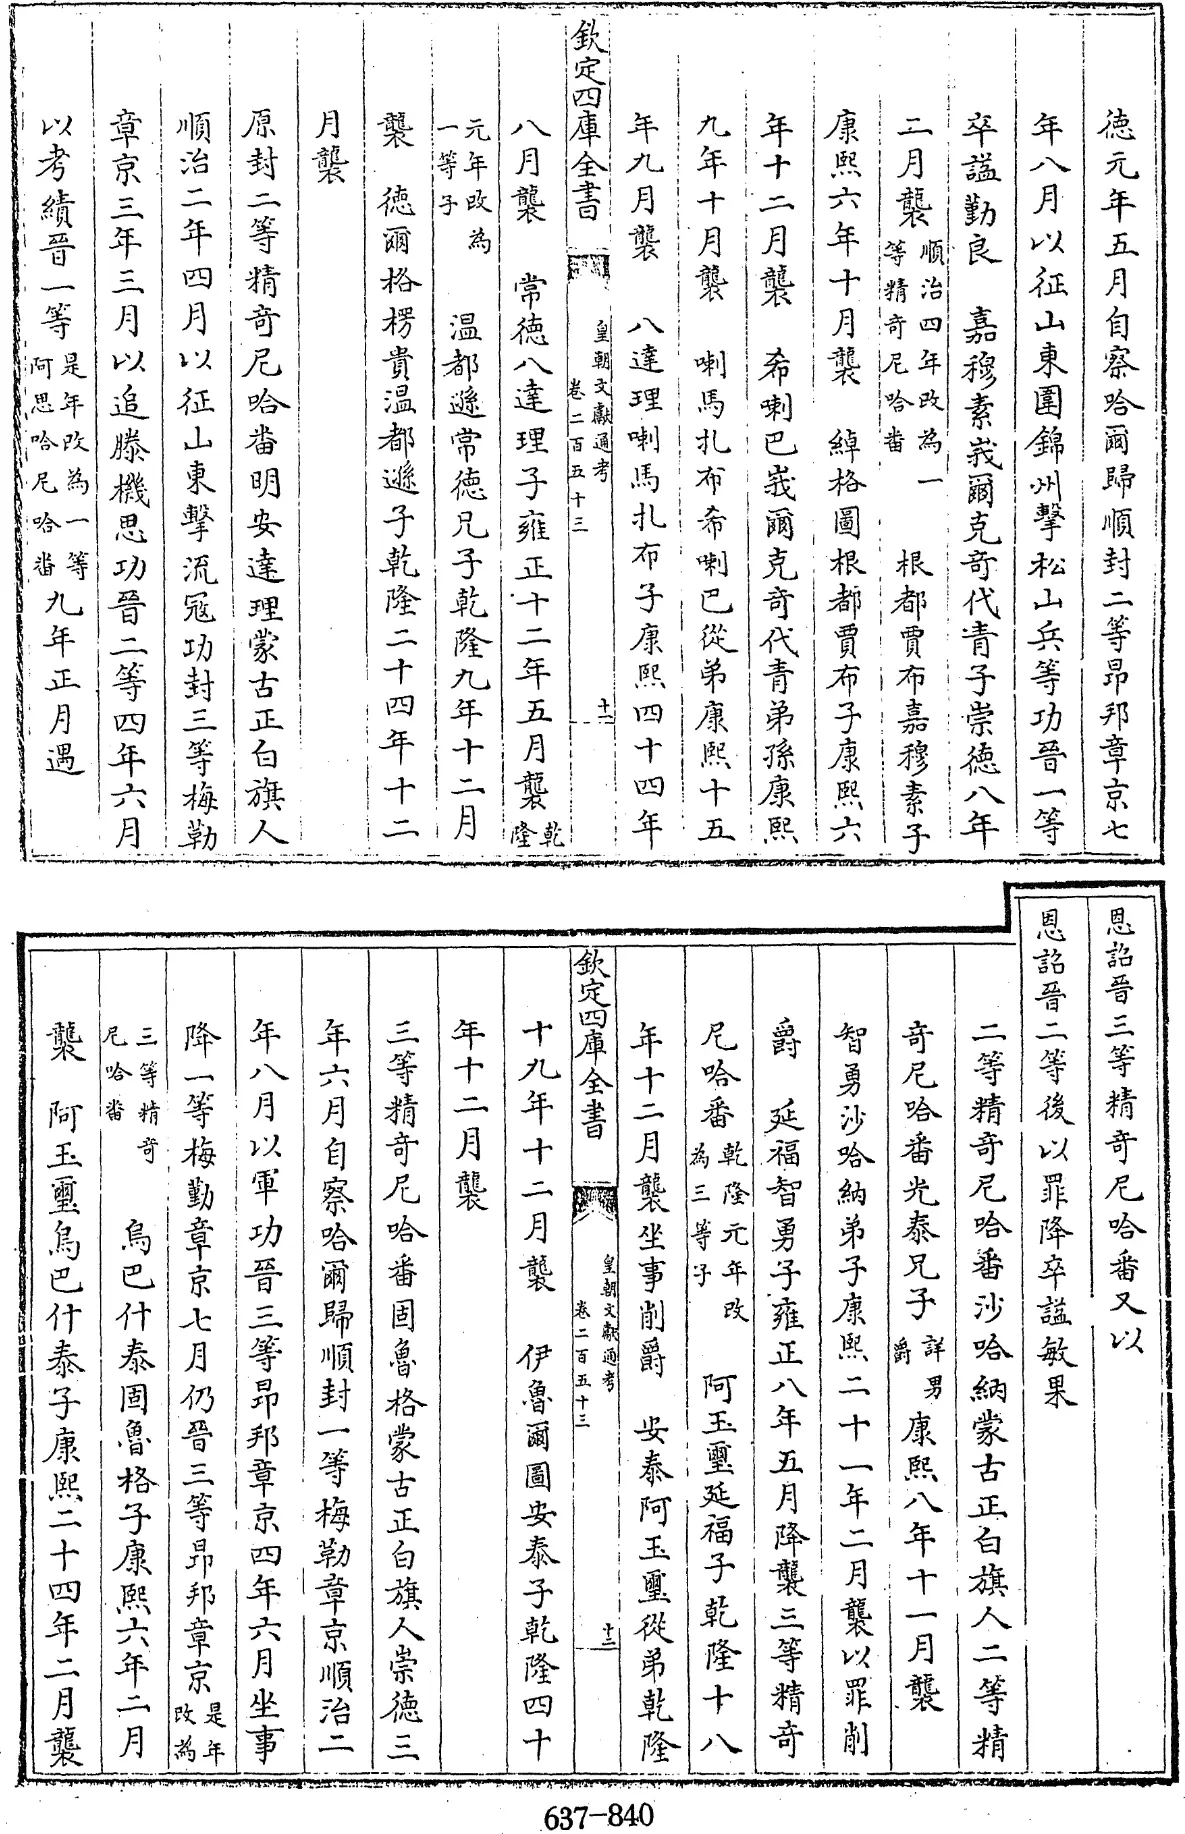 德元年五月自察哈爾歸順封二等昂邦章京七
年八月以征山東圍錦州擊松山兵等功晉一等
卒諡勤良　嘉穆素峩爾克奇代青子崇德八年
二月襲順治四年改為一等精奇尼哈番　根都賈布嘉穆素子
康熙六年十月襲　綽格圖根都賈布子康熙六
年十二月襲　希喇巴峩爾克奇代青弟孫康熙
九年十月襲　喇馬扎布希喇巴從弟康熙十五
年九月襲　八達理喇馬扎布子康熙四十四年
欽定四庫全書
皇朝文獻通考
卷二百五十三
十一
八月襲　常德八達理子雍正十二年五月襲乾隆
元年改為一等子　溫都遜常德兄子乾隆九年十二月
襲　德爾格楞貴溫都遜子乾隆二十四年十二
月襲
原封二等精奇尼哈番明安達理蒙古正白旗人
順治二年四月以征山東擊流冦功封三等梅勒
章京三年三月以追滕機思功晉二等四年六月
以考績晉一等是年改為一等阿思哈尼哈番九年正月遇
恩詔晉三等精奇尼哈番又以
恩詔晉二等後以罪降卒諡敏果
二等精奇尼哈番沙哈納蒙古正白旗人二等精
奇尼哈番光泰兄子詳男爵康熙八年十一月襲
智勇沙哈納弟子康熙二十一年二月襲以罪削
爵　延福智勇子雍正八年五月降襲三等精奇
尼哈番乾隆元年改為三等子　阿玉璽延福子乾隆十八
年十二月襲坐事削爵　安泰阿玉璽從弟乾隆
欽定四庫全書
皇朝文獻通考
卷二百五十三
十二
十九年十二月襲　伊魯爾圖安泰子乾隆四十
年十二月襲
三等精奇尼哈番固魯格蒙古正白旗人崇德三
年六月自察哈爾歸順封一等梅勒章京順治二
年八月以軍功晉三等昂邦章京四年六月坐事
降一等梅勒章京七月仍晉三等昂邦章京是年改為
三等精奇尼哈番　烏巴什泰固魯格子康熙六年二月
襲　阿玉璽烏巴什泰子康熙二十四年二月襲
637-840